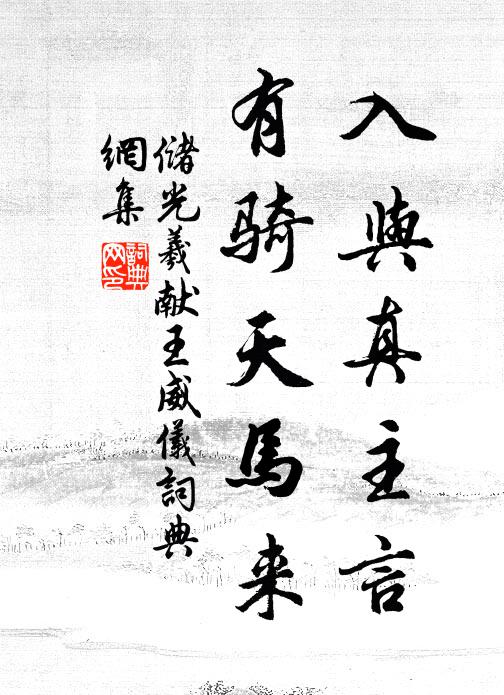 入與真主言
有骑天馬来
儲光羲献王威儀詞典
網集
詞典
网印